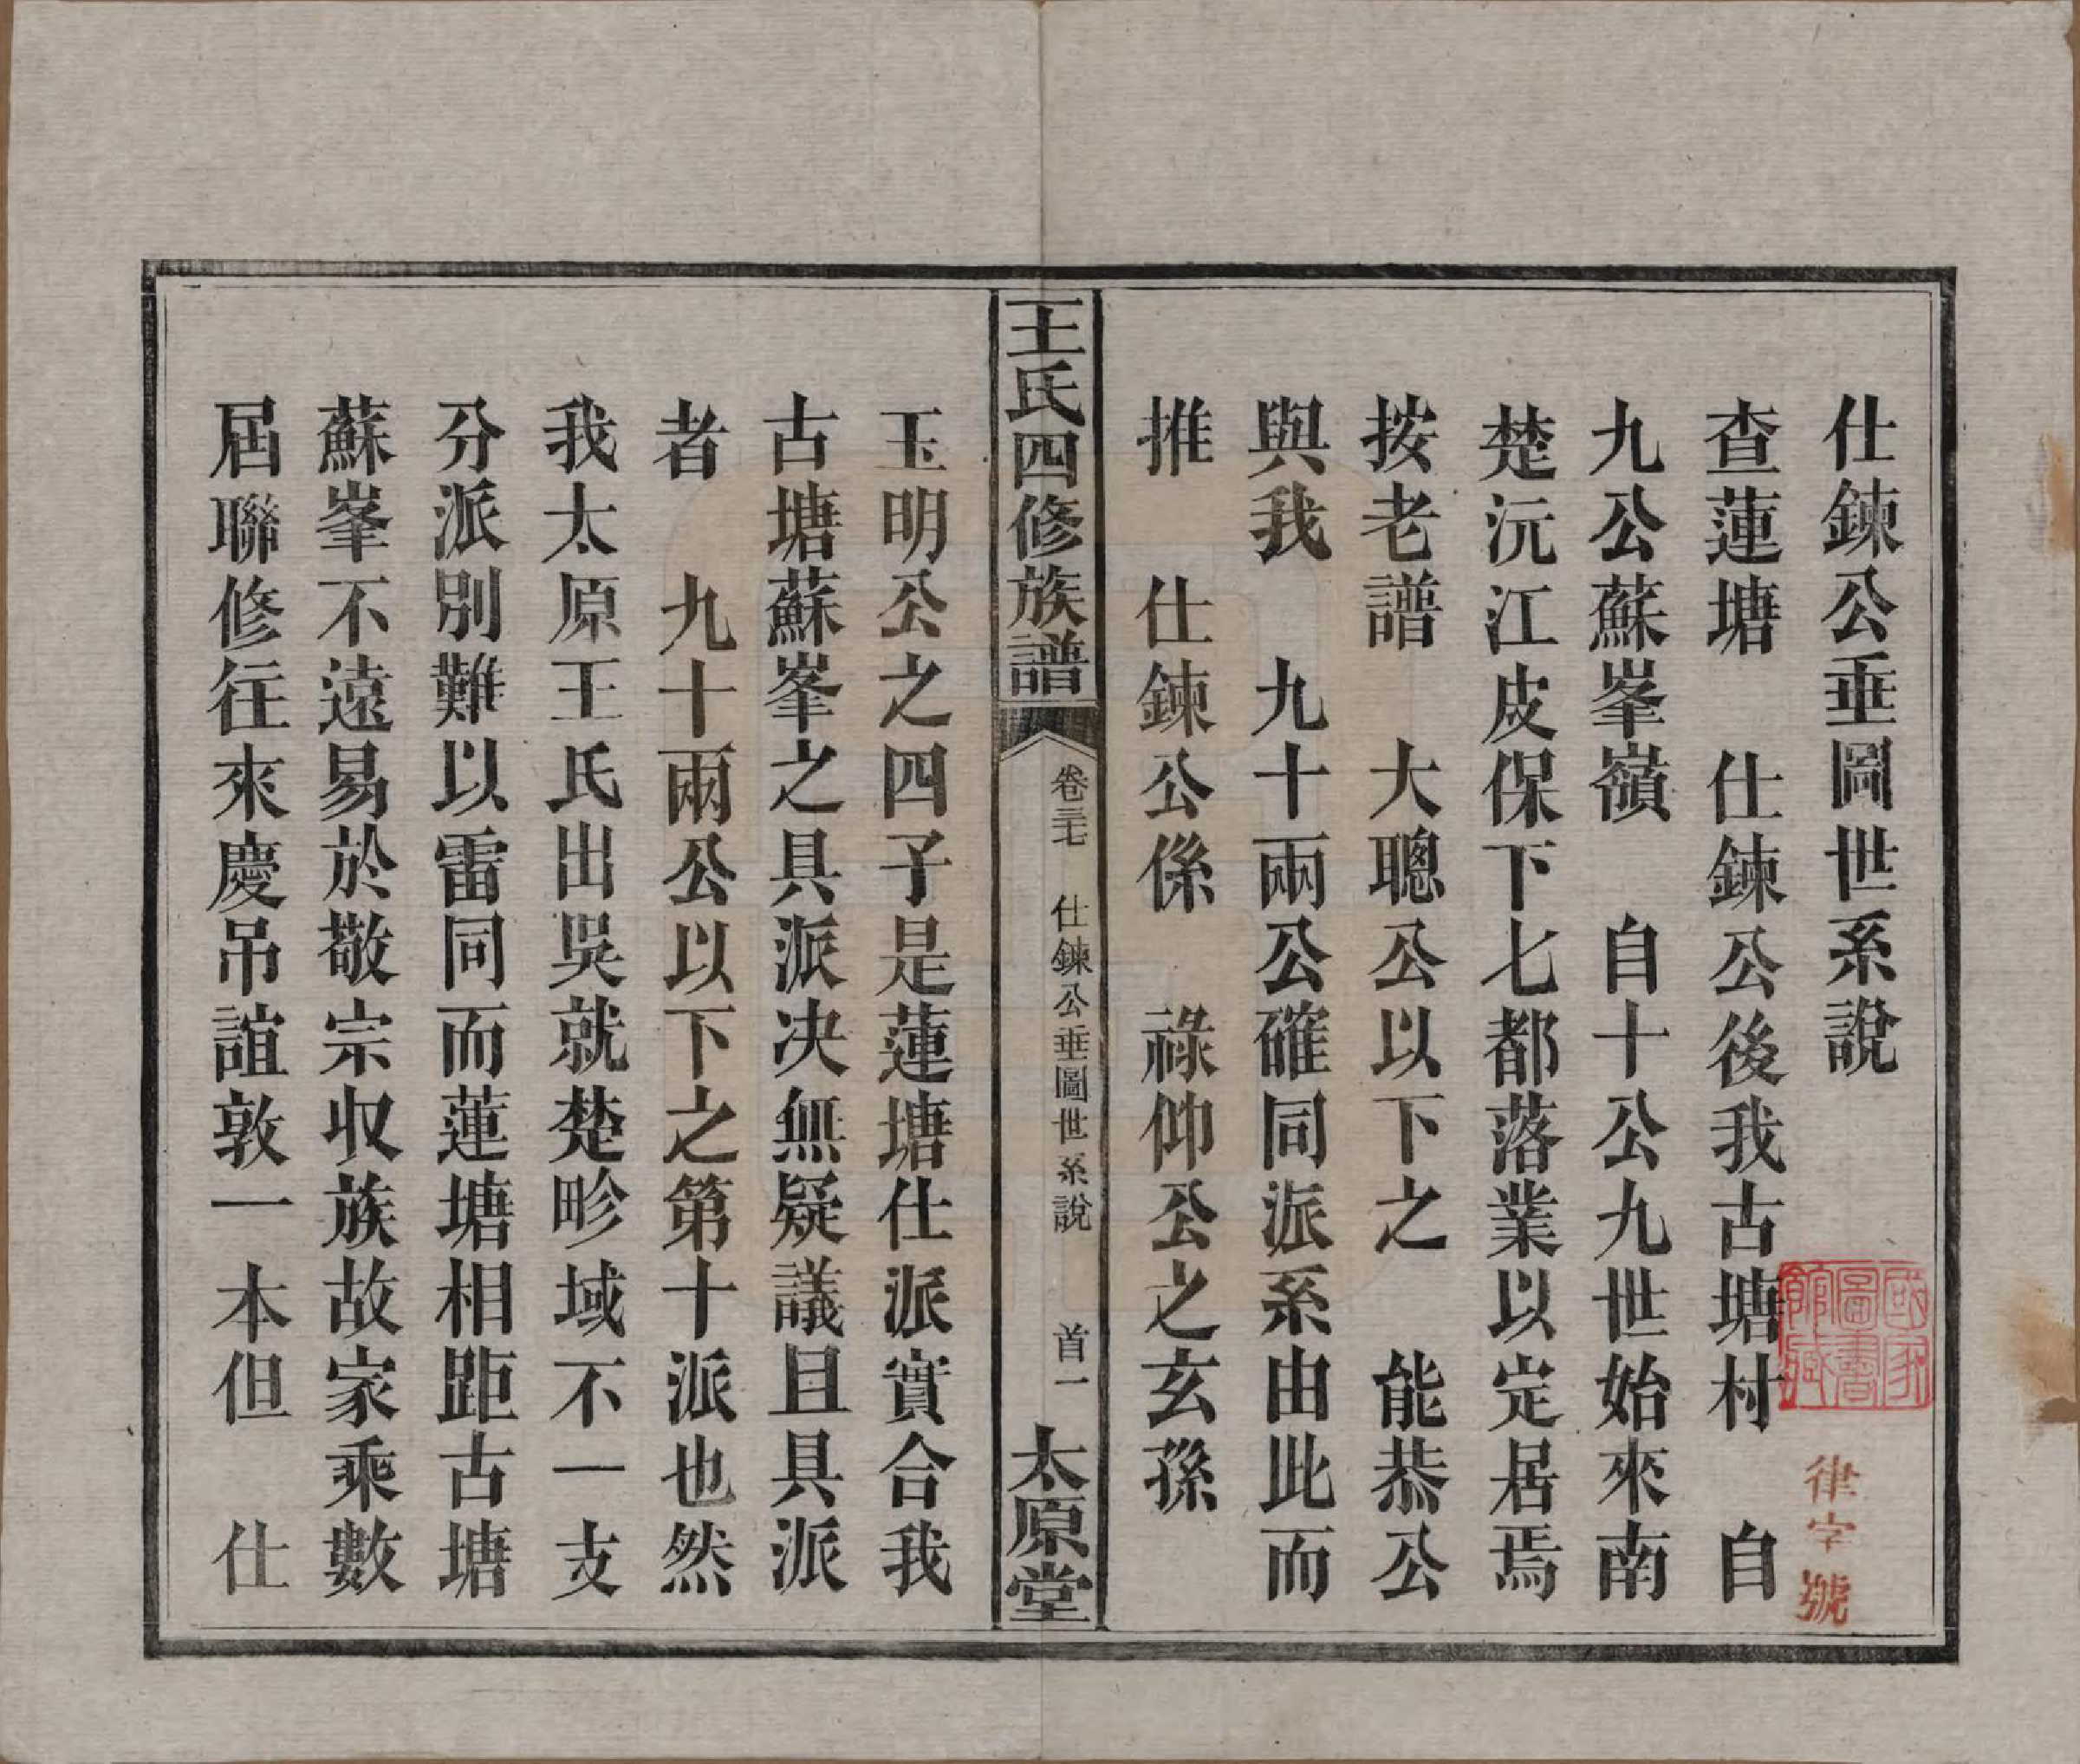 仕鍊公垂圖世系說
查蓮塘　仕鍊公後我古塘村　自
九公蘇峯嶺　自十公九世始來南
楚沅江皮保下七都落業以定居焉
按老譜　大聰公以下之　能恭公
與我　九十兩公確同派系由此而
推　仕鍊公係　祿仰公之玄孫
王氏四修族譜
卷三七　仕鍊公垂圖世系說　首一
太原堂
玉明公之四子是蓮塘仕派實合我
古塘蘇峯之具派决無疑議且具派
者　九十兩公以下之第十派也然
我太原王氏出吳就楚畛域不一支
分派別難以雷同而蓮塘相距古塘
蘇峯不遠易於敬宗收族故家乘數
屆聯修往來慶吊誼敦一本但　仕
國家圖書館藏
律字號